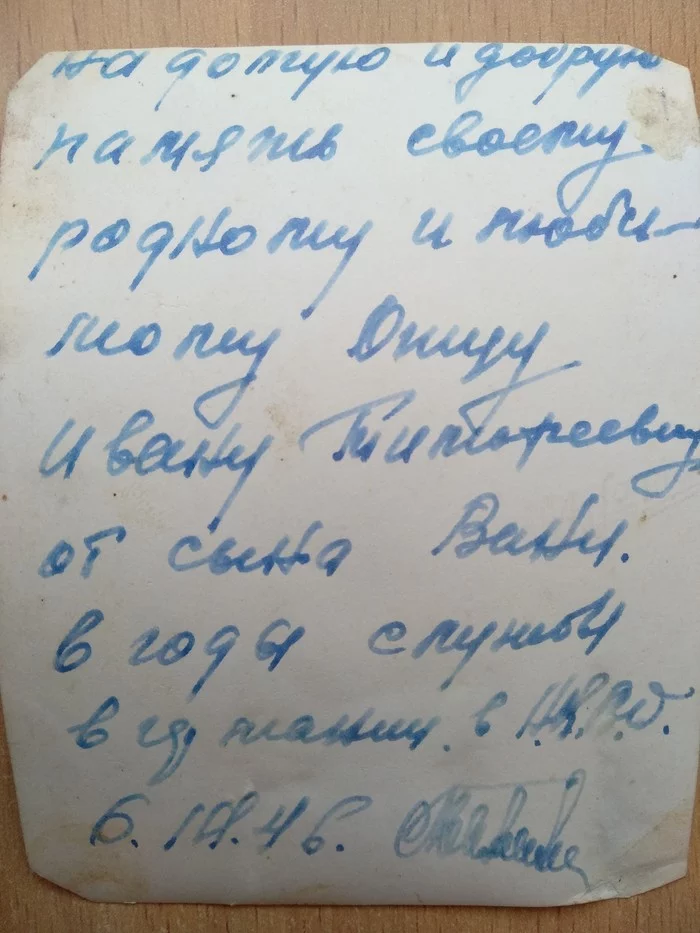 на долгую и добрую
память своему
родному и люби-
мому Отцу
Ивану Тимофеевичу
от сына Вани.
в годы службы
в германии. в
6. 46.